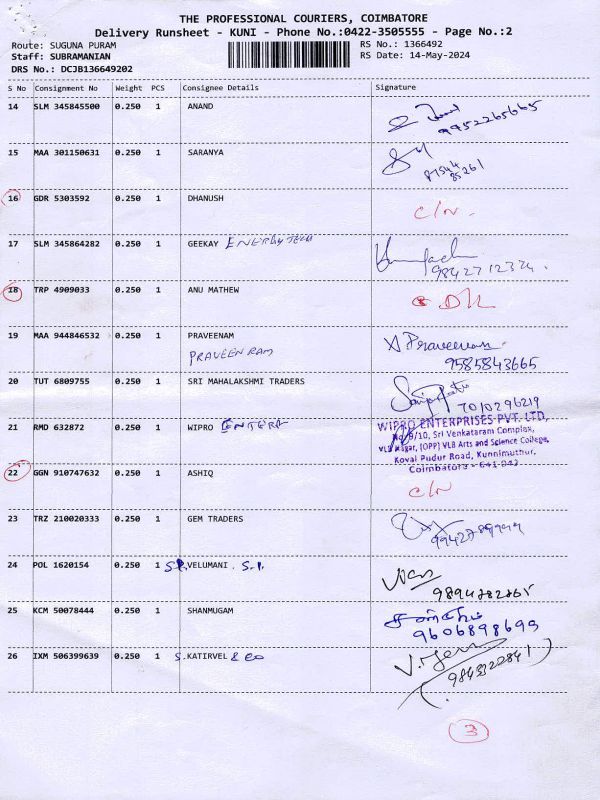 THE PROFESSIONAL COURIERS, COIMBATORE
Delivery Runsheet - KUNI - Phone No.:0422-3505555 - Page No.:2
Route: SUGUNA PURAM RS No.: 1366492
Staff: SUBRAMANIAN RS Date: 14-May-2024
DRS No.: DCJB136649202
S No Consignment No Weight PCS Consignee Details Signature
14 SLM 345845500 0.250 1 ANAND
9952265665
15 MAA 301150631 0.250 1 SARANYA
87544
85261
16 GDR 5303592 0.250 1 DHANUSH C/N.
17 SLM 345864282 0.250 1 GEEKAY ENERGYTECH
9842712324.
18 TRP 4909033 0.250 1 ANU MATHEW DL
19 MAA 944846532 0.250 1 PRAVEENAM A Praveenam
PRAVEEN RAM 9585843665
20 TUT 6809755 0.250 1 SRI MAHALAKSHMI TRADERS
7010296219
21 RMD 632872 0.250 1 WIPRO ENTERP WIPRO ENTERPRISES PVT. LTD,
No 9/10, Sri Venkataram Complex,
VLB Nagar, (OPP) VLB Arts and Science College,
Kovai Pudur Road, Kunnimuthur,
Coimbatore - 641 042
22 GGN 910747632 0.250 1 ASHIQ C/N
23 TRZ 210020333 0.250 1 GEM TRADERS
24 POL 1620154 0.250 1 SP.VELUMANI. S.I.
9894282865
25 KCM 50078444 0.250 1 SHANMUGAM
9606898699
26 IXM 506399639 0.250 1 S.KATIRVEL & CO
3